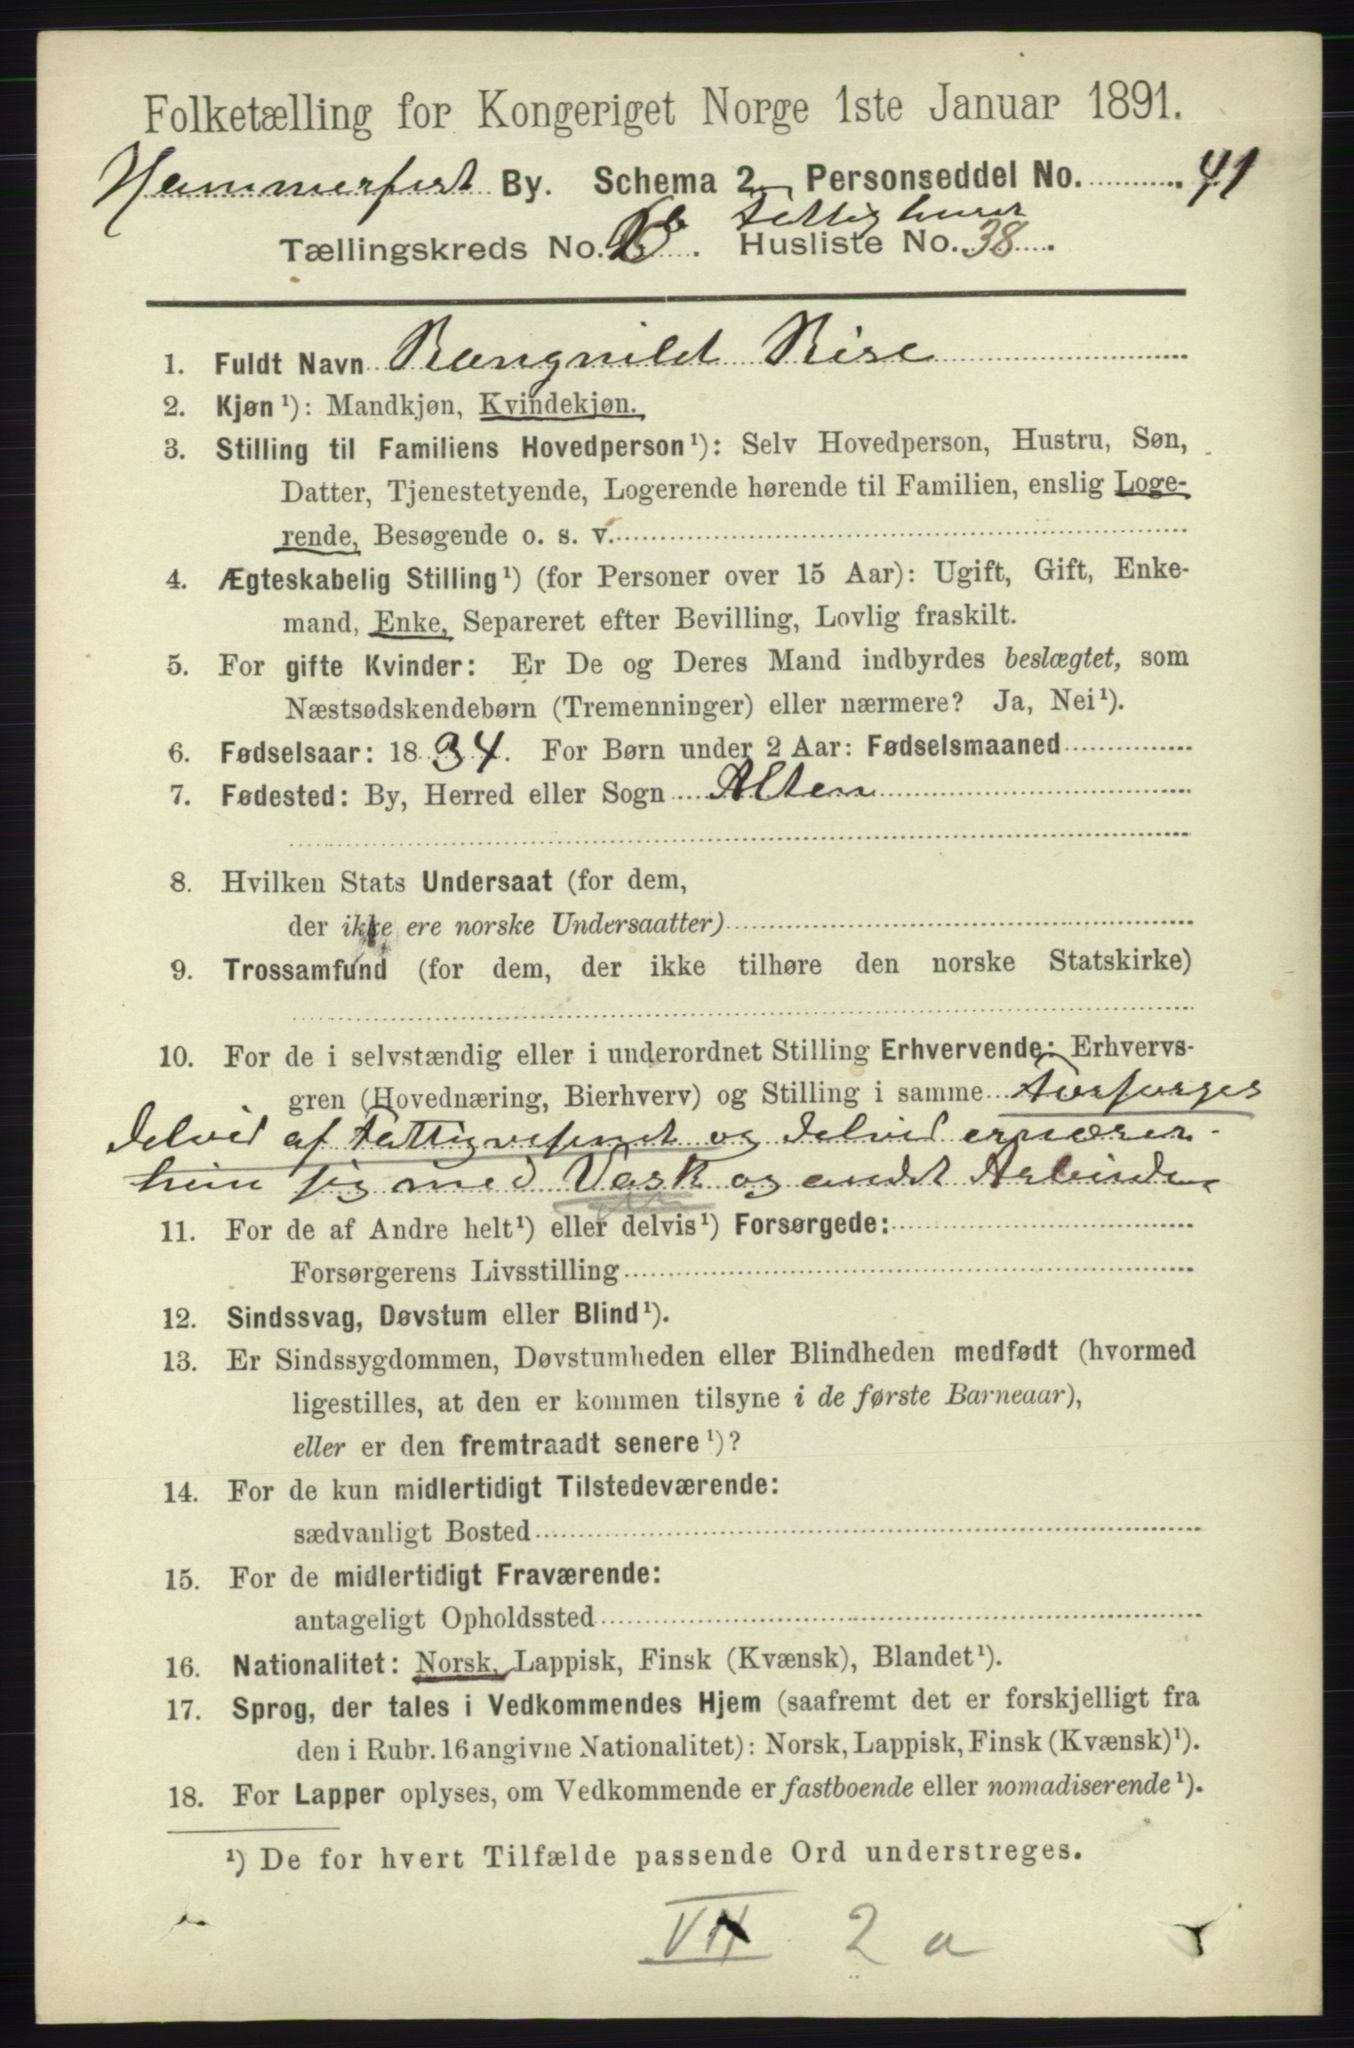 Folketælling for Kongeriget Norge 1ste Januar 1891.
Hammerfest By. Schema 2. Personseddel No. 41
Fattighuset
Tællingskreds No. Husliste No. 38.
1. Fuldt Navn Rangnild Rise
2. Kjøn ¹): Mandkjøn, Kvindekjøn.
3. Stilling til Familiens Hovedperson ¹): Selv Hovedperson, Hustru, Søn,
Datter, Tjenestetyende, Logerende hørende til Familien, enslig Loge-
rende, Besøgende o. s. v.
4. Ægteskabelig Stilling ¹) (for Personer over 15 Aar): Ugift, Gift, Enke-
mand, Enke, Separeret efter Bevilling, Lovlig fraskilt.
5. For gifte Kvinder: Er De og Deres Mand indbyrdes beslægtet, som
Næstsødskendebørn (Tremenninger) eller nærmere? Ja, Nei ¹).
6. Fødselsaar: 1834. For Børn under 2 Aar: Fødselsmaaned
7. Fødested: By, Herred eller Sogn Alten
8. Hvilken Stats Undersaat (for dem,
der ikke ere norske Undersaatter)
9. Trossamfund (for dem, der ikke tilhøre den norske Statskirke)
10. For de i selvstændig eller i underordnet Stilling Erhvervende: Erhvervs-
gren (Hovednæring, Bierhverv) og Stilling i samme Forsørges
delvis af Fattigvesenet og delvis ernærer
hun sig med Vask og andet Arbeide
11. For de af Andre helt ¹) eller delvis ¹) Forsørgede:
Forsørgerens Livsstilling
12. Sindssvag, Døvstum eller Blind ¹).
13. Er Sindssygdommen, Døvstumheden eller Blindheden medfødt (hvormed
ligestilles, at den er kommen tilsyne i de første Barneaar),
eller er den fremtraadt senere ¹)?
14. For de kun midlertidigt Tilstedeværende:
sædvanligt Bosted
15. For de midlertidigt Fraværende:
antageligt Opholdssted
16. Nationalitet: Norsk, Lappisk, Finsk (Kvænsk), Blandet ¹).
17. Sprog, der tales i Vedkommendes Hjem (saafremt det er forskjelligt fra
den i Rubr. 16 angivne Nationalitet): Norsk, Lappisk, Finsk (Kvænsk) ¹).
18. For Lapper oplyses, om Vedkommende er fastboende eller nomadiserende ¹).
¹) De for hvert Tilfælde passende Ord understreges.
2 a